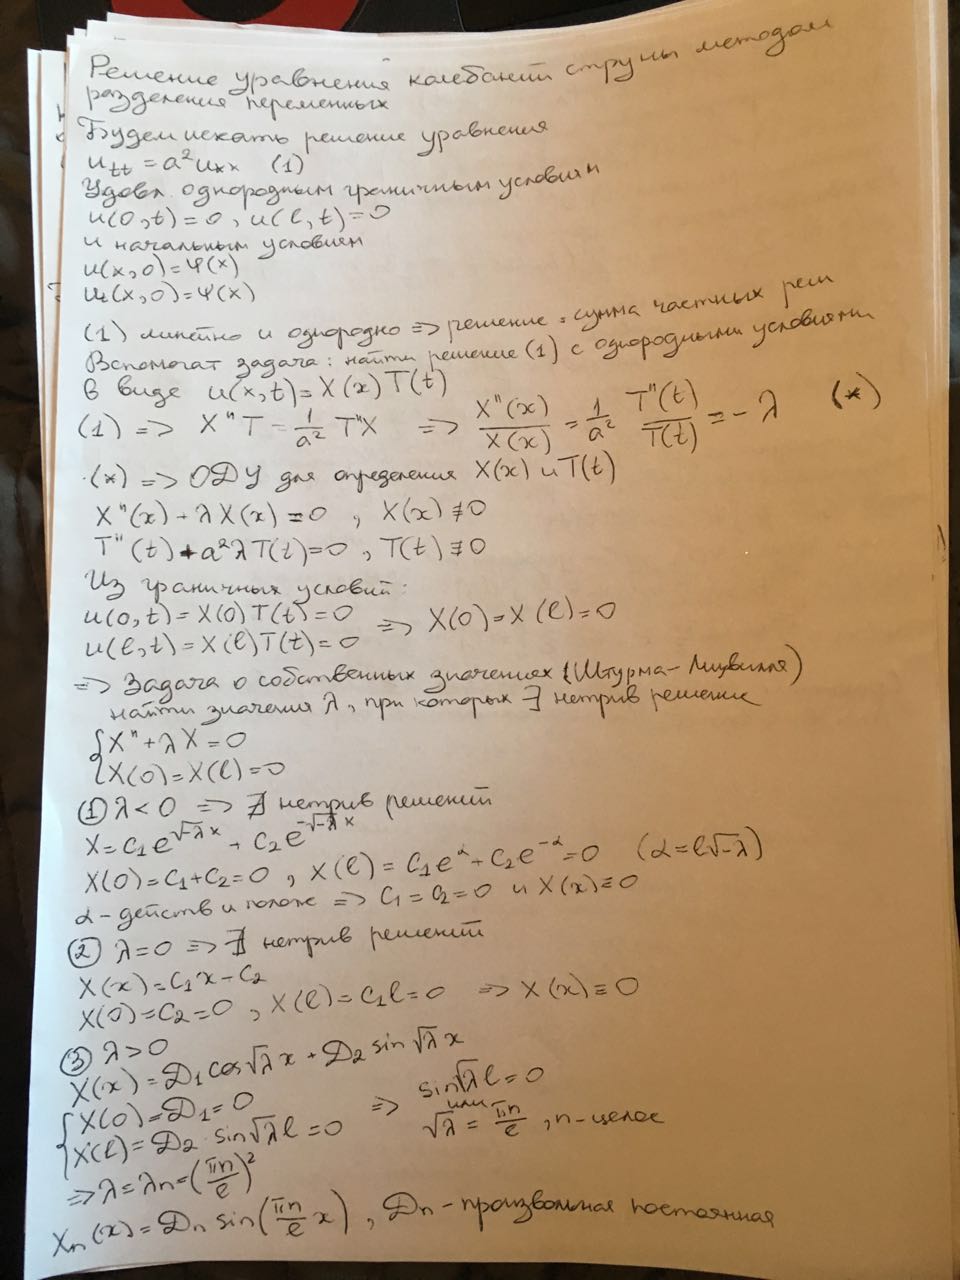 Решение уравнения колебаний струны методом
разделения переменных
Будем искать решение уравнения
u_tt = a²u_xx (1)
Удовл. однородным граничным условиям
u(0,t)=0, u(l,t)=0
и начальным условием
u(x,0)=φ(x)
u_t(x,0)=ψ(x)
(1) линейно и однородно => решение = сумма частных реш
Вспомогат задача: найти решение (1) с однородными условиями
в виде u(x,t)=X(x)T(t)
(1) => X"T = 1/a² T"X => X"(x)/X(x) = 1/a² T"(t)/T(t) = -λ (*)
(*) => ОДУ для определения X(x) и T(t)
X"(x)+λX(x)=0, X(x)≢0
T"(t)+a²λT(t)=0, T(t)≢0
Из граничных условий:
u(0,t)=X(0)T(t)=0
u(l,t)=X(l)T(t)=0 => X(0)=X(l)=0
=> Задача о собственных значениях (Штурма-Лиувилля)
найти значения λ, при которых ∃ нетрив решение
{X"+λX=0
X(0)=X(l)=0
① λ<0 => ∄ нетрив решений
X=C₁e^(√-λ x) + C₂e^(-√-λ x)
X(0)=C₁+C₂=0, X(l)=C₁e^α+C₂e^-α=0 (α=l√-λ)
α-действ и полож => C₁=C₂=0 и X(x)≡0
② λ=0 => ∄ нетрив решений
X(x)=C₁x-C₂
X(0)=C₂=0, X(l)=C₁l=0 => X(x)≡0
③ λ>0
X(x)=D₁cos√λx+D₂sin√λx
{X(0)=D₁=0 => sin√λl=0
X(l)=D₂·sin√λl=0 или √λ=πn/l, n-целое
=> λ=λₙ=(πn/l)²
Xₙ(x)=Dₙsin(πn/l x), Dₙ-произвольная постоянная